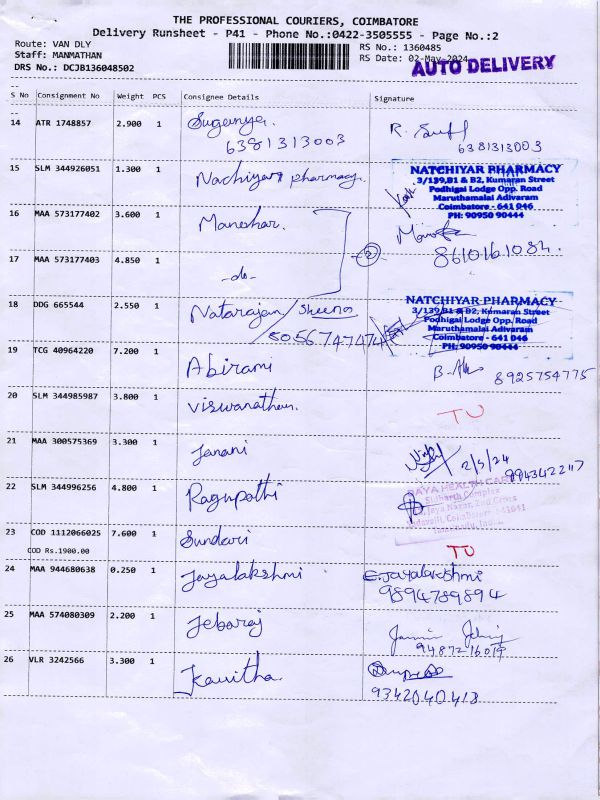 THE PROFESSIONAL COURIERS, COIMBATORE
Delivery Runsheet - P41 - Phone No.:0422-3505555 - Page No.:2
Route: VAN DLY
Staff: MANMATHAN
DRS No.: DCJB136048502
RS No.: 1360485
RS Date: 02-May-2024
AUTO DELIVERY
S No Consignment No Weight PCS Consignee Details Signature
14 ATR 1748857 2.900 1 Suganya.
6381313003
6381313003
15 SLM 344926051 1.300 1 Nachiyar pharmacy.
NATCHIYAR PHARMACY
3/139,B1 & B2, Kumaran Street
Podhigai Lodge Opp. Road
Maruthamalai Adivaram
Coimbatore - 641 046
PH: 90950 90444
16 MAA 573177402 3.600 1 Maneshar.
17 MAA 573177403 4.850 1 -do-
2
8610161084.
18 DDG 665544 2.550 1 Natarajan / Sheena
8056747474
NATCHIYAR PHARMACY
3/139,B1 & B2, Kumaran Street
Podhigai Lodge Opp. Road
Maruthamalai Adivaram
Coimbatore - 641 046
PH: 90950 90444
19 TCG 40964220 7.200 1 Abirami
8925754775
20 SLM 344985987 3.800 1 Viswanathan.
TU
21 MAA 300575369 3.300 1 Janani
2/5/24
9943422247
22 SLM 344996256 4.800 1 Ragupathi
Sidharth Complex
Jaya Nagar, 2nd Cross
Vadavalli, Coimbatore
23 COD 1112066025 7.600 1 Sundari
COD Rs.1900.00
TU
24 MAA 944680638 0.250 1 Jayalakshmi
E.Jayalakshmi
9894789894
25 MAA 574080309 2.200 1 Jebaraj
9487216019
26 VLR 3242566 3.300 1 Kavitha.
9342040418